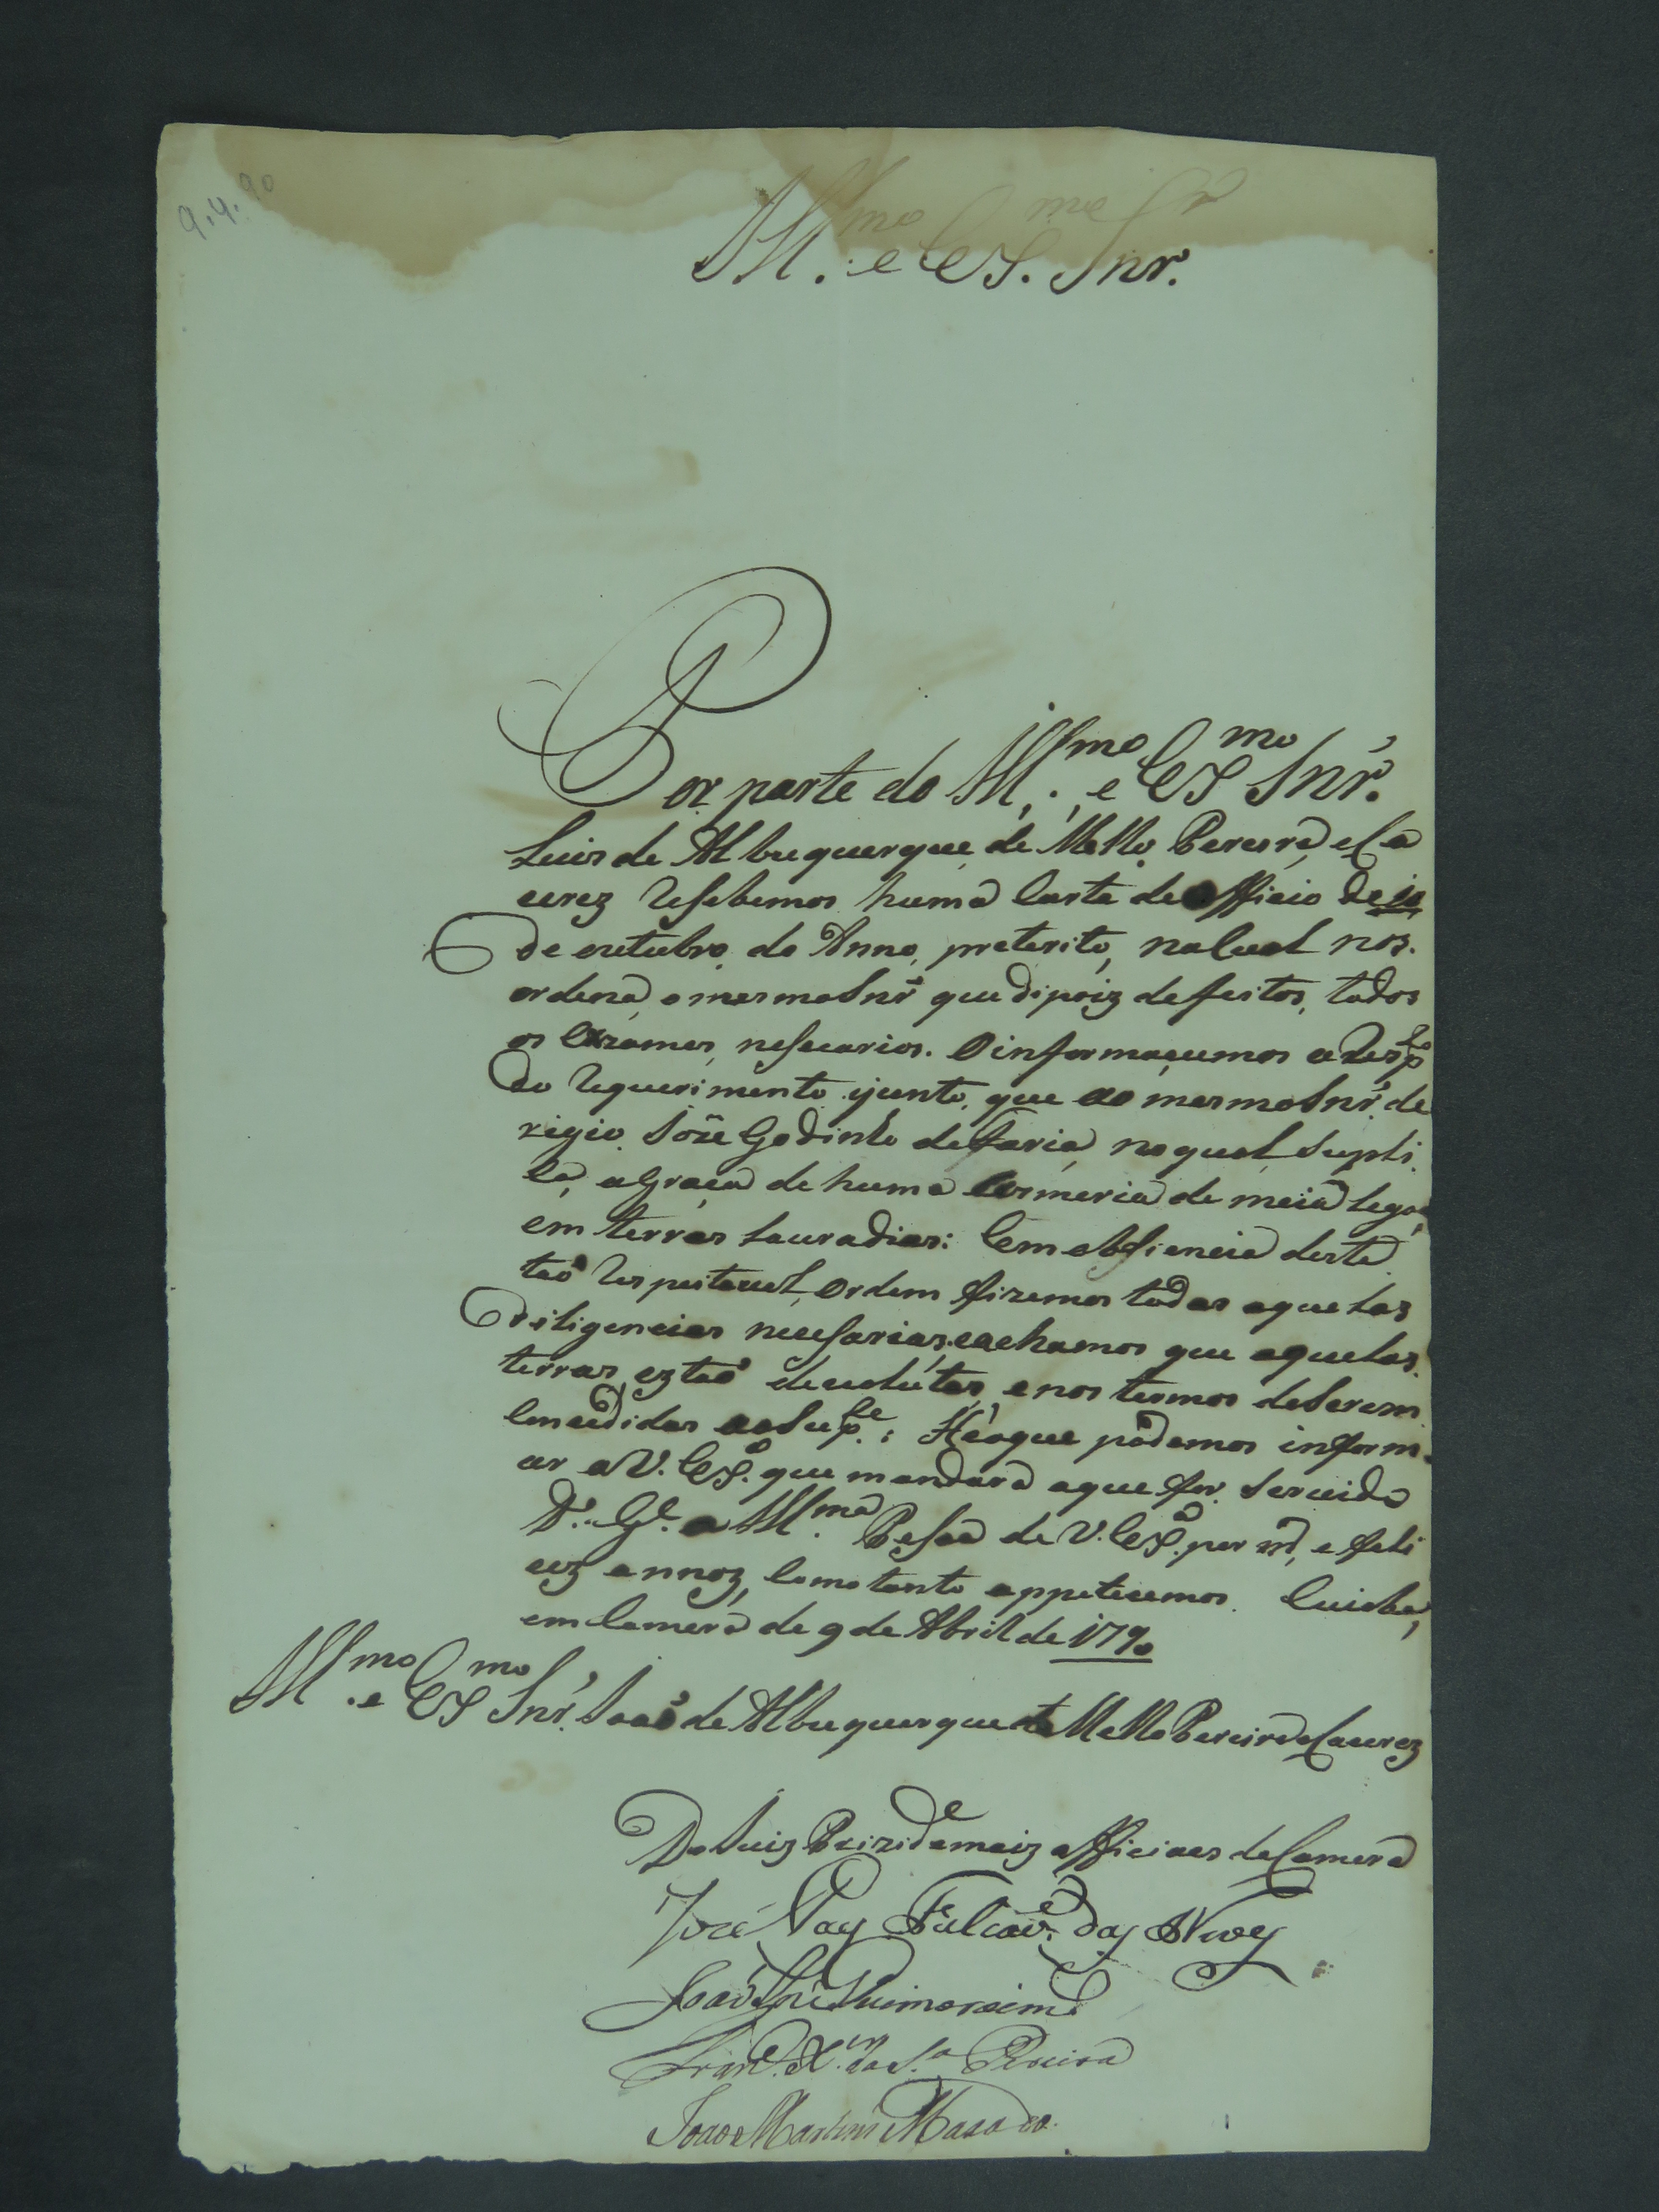 9.4.90
Ill.mo e Ex.mo Snr.
Por parte do Ill.mo e Ex.mo Snr.
Luis de Albuquerque de Mello Pereira, e Ca
cerez Resebemos huma Carta de officio de 10
de outubro do Anno preterito, na Cual nos
ordena o mesmo Snr que dipoiz de feitos, todos
os Exzames nesecarios. O informacemos a Resp.to
do Requerimento junto, que ao mesmo Snr. de
rigio José Godinho de Faria, no qual Supli
ca, a Graça de huma Cesmeria de meia Legoa
em terras Lauradias: Cem obfiencia desta
taõ Respeitavel, Ordem fizemos todas aquelas
diligencias necesarias, e achamos que aquelas
terras, eztaõ devolutas, e nos termos de Serem
Concedidas ao Sup.te: He o que podemos inform
ar a V. Ex.a que mandara a que for Servido
D.s G.e a Ill.ma Pesoa de V. Ex.a por m.s e feli
cez annoz, Como tanto appetecemos. Cuiaba,
em Camera de 9 de Abril de 1790
Ill.mo e Ex.mo Snr. Joaõ de Albuquerque de Mello Pereira e Cacerez
Do Juiz Prezid.e e maiz officiaes da Camera
José Pay Falcaõ das Neves
Joaõ José Guimaraens
Fran.co X.er da S.a Pereira
Joao Martins